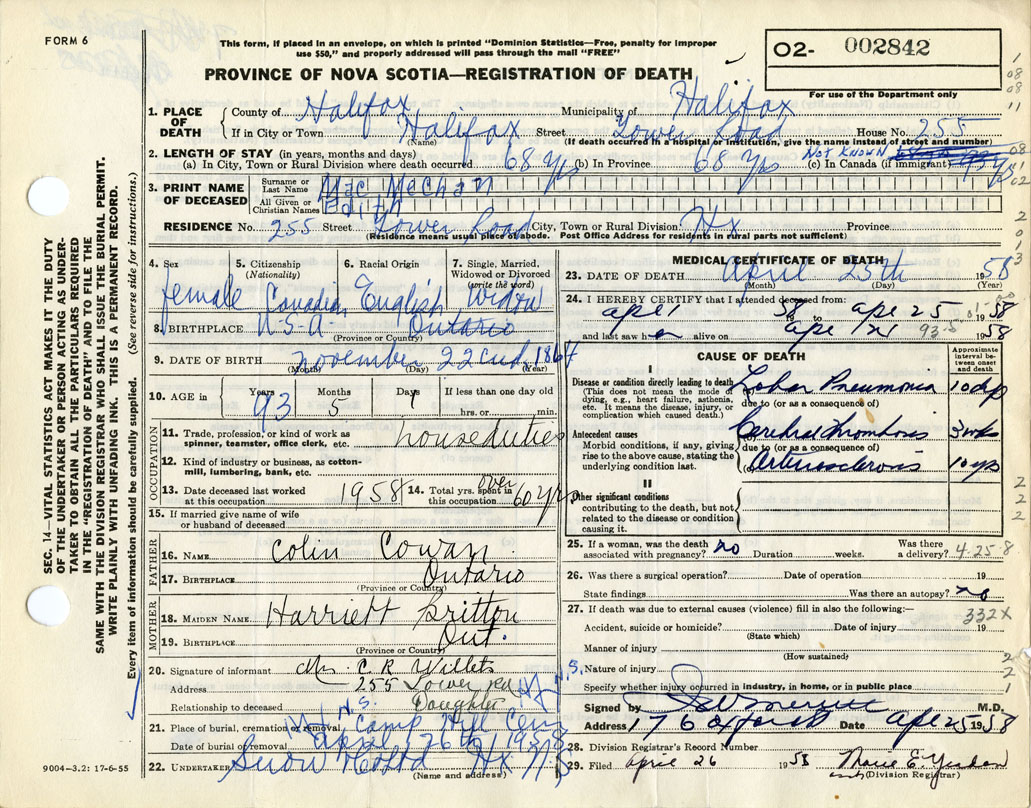 FORM 6
This form, if placed in an envelope, on which is printed "Dominion Statistics—Free, penalty for improper
use $50," and properly addressed will pass through the mail "FREE"
PROVINCE OF NOVA SCOTIA—REGISTRATION OF DEATH
O2- 002842
For use of the Department only
1. PLACE OF DEATH { County of Halifax Municipality of Halifax
If in City or Town Halifax Street Tower Road House No. 255
(Name) (If death occurred in a hospital or institution, give the name instead of street and number)
2. LENGTH OF STAY (in years, months and days)
(a) In City, Town or Rural Division where death occurred 68 yrs (b) In Province 68 yrs (c) In Canada (if immigrant) Not Known
3. PRINT NAME OF DECEASED { Surname or Last Name Mac Mechan
All Given or Christian Names Edith
RESIDENCE No. 255 Street Tower Road City, Town or Rural Division Hx Province
(Residence means usual place of abode. Post Office Address for residents in rural parts not sufficient)
4. Sex female
5. Citizenship (Nationality) Canadian
6. Racial Origin English
7. Single, Married, Widowed or Divorced (write the word) Widow
8. BIRTHPLACE Ontario
(Province or Country)
9. DATE OF BIRTH November 22nd, 1864
(Month) (Day) (Year)
10. AGE in { Years 93 Months 5 Days If less than one day old hrs. or min.
OCCUPATION
11. Trade, profession, or kind of work as spinner, teamster, office clerk, etc. house duties
12. Kind of industry or business, as cotton-mill, lumbering, bank, etc.
13. Date deceased last worked at this occupation 1958
14. Total yrs. spent in this occupation over 60 yrs
15. If married give name of wife or husband of deceased
FATHER
16. NAME Colin Cowan
17. BIRTHPLACE Ontario
(Province or Country)
MOTHER
18. MAIDEN NAME Harriett Britton
19. BIRTHPLACE Ont.
(Province or Country)
20. Signature of informant Mrs. C R Willets
Address 255 Tower rd Hx N.S.
Relationship to deceased Daughter
21. Place of burial, cremation or removal Camp Hill Cem N.S.
Date of burial or removal April 26th 1958
22. UNDERTAKER Snow & Co Ltd Hx N S
(Name and address)
MEDICAL CERTIFICATE OF DEATH
23. DATE OF DEATH April 25th 1958
(Month) (Day) (Year)
24. I HEREBY CERTIFY that I attended deceased from:
Apr 1 58 to Apr 25 1958
and last saw h er alive on Apr 1958
CAUSE OF DEATH
Approximate interval between onset and death
I
Disease or condition directly leading to death
(This does not mean the mode of dying, e.g., heart failure, asthenia, etc. It means the disease, injury, or complication which caused death.)
(a) Lobar Pneumonia 10 dys
due to (or as a consequence of)
Antecedent causes
Morbid conditions, if any, giving rise to the above cause, stating the underlying condition last.
(b) Cerebral Thrombosis 3 wks
due to (or as a consequence of)
(c) Arteriosclerosis 10 yrs
II
Other significant conditions
contributing to the death, but not related to the disease or condition causing it.
25. If a woman, was the death associated with pregnancy? no Duration weeks. Was there a delivery? 4.25.8
26. Was there a surgical operation? Date of operation 19
State findings Was there an autopsy? no
27. If death was due to external causes (violence) fill in also the following:— 332X
Accident, suicide or homicide? Date of injury 19
(State which)
Manner of injury
(How sustained)
Nature of injury
Specify whether injury occurred in industry, in home, or in public place
Signed by M.D.
Address 176 Oxford St Date Apr 25 1958
28. Division Registrar's Record Number
29. Filed April 26 1958 Marie E.
(Division Registrar)
SEC. 14—VITAL STATISTICS ACT MAKES IT THE DUTY
OF THE UNDERTAKER OR PERSON ACTING AS UNDER-
TAKER TO OBTAIN ALL THE PARTICULARS REQUIRED
IN THE "REGISTRATION OF DEATH" AND TO FILE THE
SAME WITH THE DIVISION REGISTRAR WHO SHALL ISSUE THE BURIAL PERMIT.
WRITE PLAINLY WITH UNFADING INK. THIS IS A PERMANENT RECORD.
Every item of information should be carefully supplied. (See reverse side for instructions.)
9004-3.2: 17-6-55